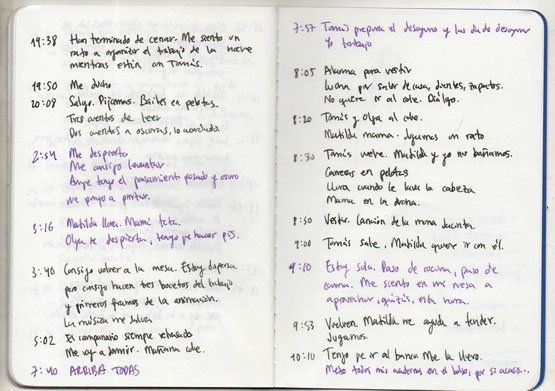 19:38 Han terminado de cenar. Me siento un
rato a organizar el trabajo de la noche
mientras están con Tomás.
19:50 Me ducho
20:08 Salgo. Pijamas. Bailes en pelotas.
Tres cuentos de leer
Dos cuentos a oscuras, lo acordado.
2:54 Me despierto
Me consigo levantar
Aunque tengo el pensamiento pesado y oscuro
me pongo a pintar.
3:16 Matilda llora. Mamá teta.
Olga se despierta, tengo que hacer pis.
3:40 Consigo volver a la mesa. Estoy dispersa
pero consigo hacer tres bocetos del trabajo
y primeros frames de la animación.
La música me salva
5:02 El campanario siempre retrasado
Me voy a dormir. Mañana cole.
7:40 ARRIBA TODAS
7:57 Tomás prepara el desayuno y les da de desayunar
Yo trabajo
8:05 Ahora para vestir
Lucha por salir de casa, dientes, zapatos.
No quiere ir al cole. Diálogo.
8:20 Tomás y Olga al cole.
Matilda mama. Jugamos un rato
8:30 Tomás vuelve. Matilda y yo nos bañamos.
Carreras en pelotas
Llora cuando le lavo la cabeza
Mama en la ducha.
8:50 Vestir. Canción de la mona Jacinta.
9:00 Tomás sale, Matilda quiere ir con él.
9:10 Estoy sola. Paso de cocina, paso de
cama. Me siento en mi mesa a
aprovechar, quizás, esta hora.
9:53 Vuelven. Matilda me ayuda a tender.
Jugamos.
10:10 Tengo que ir al banco. Me la llevo.
Meto todos mis cuadernos en el bolso, por si acaso...